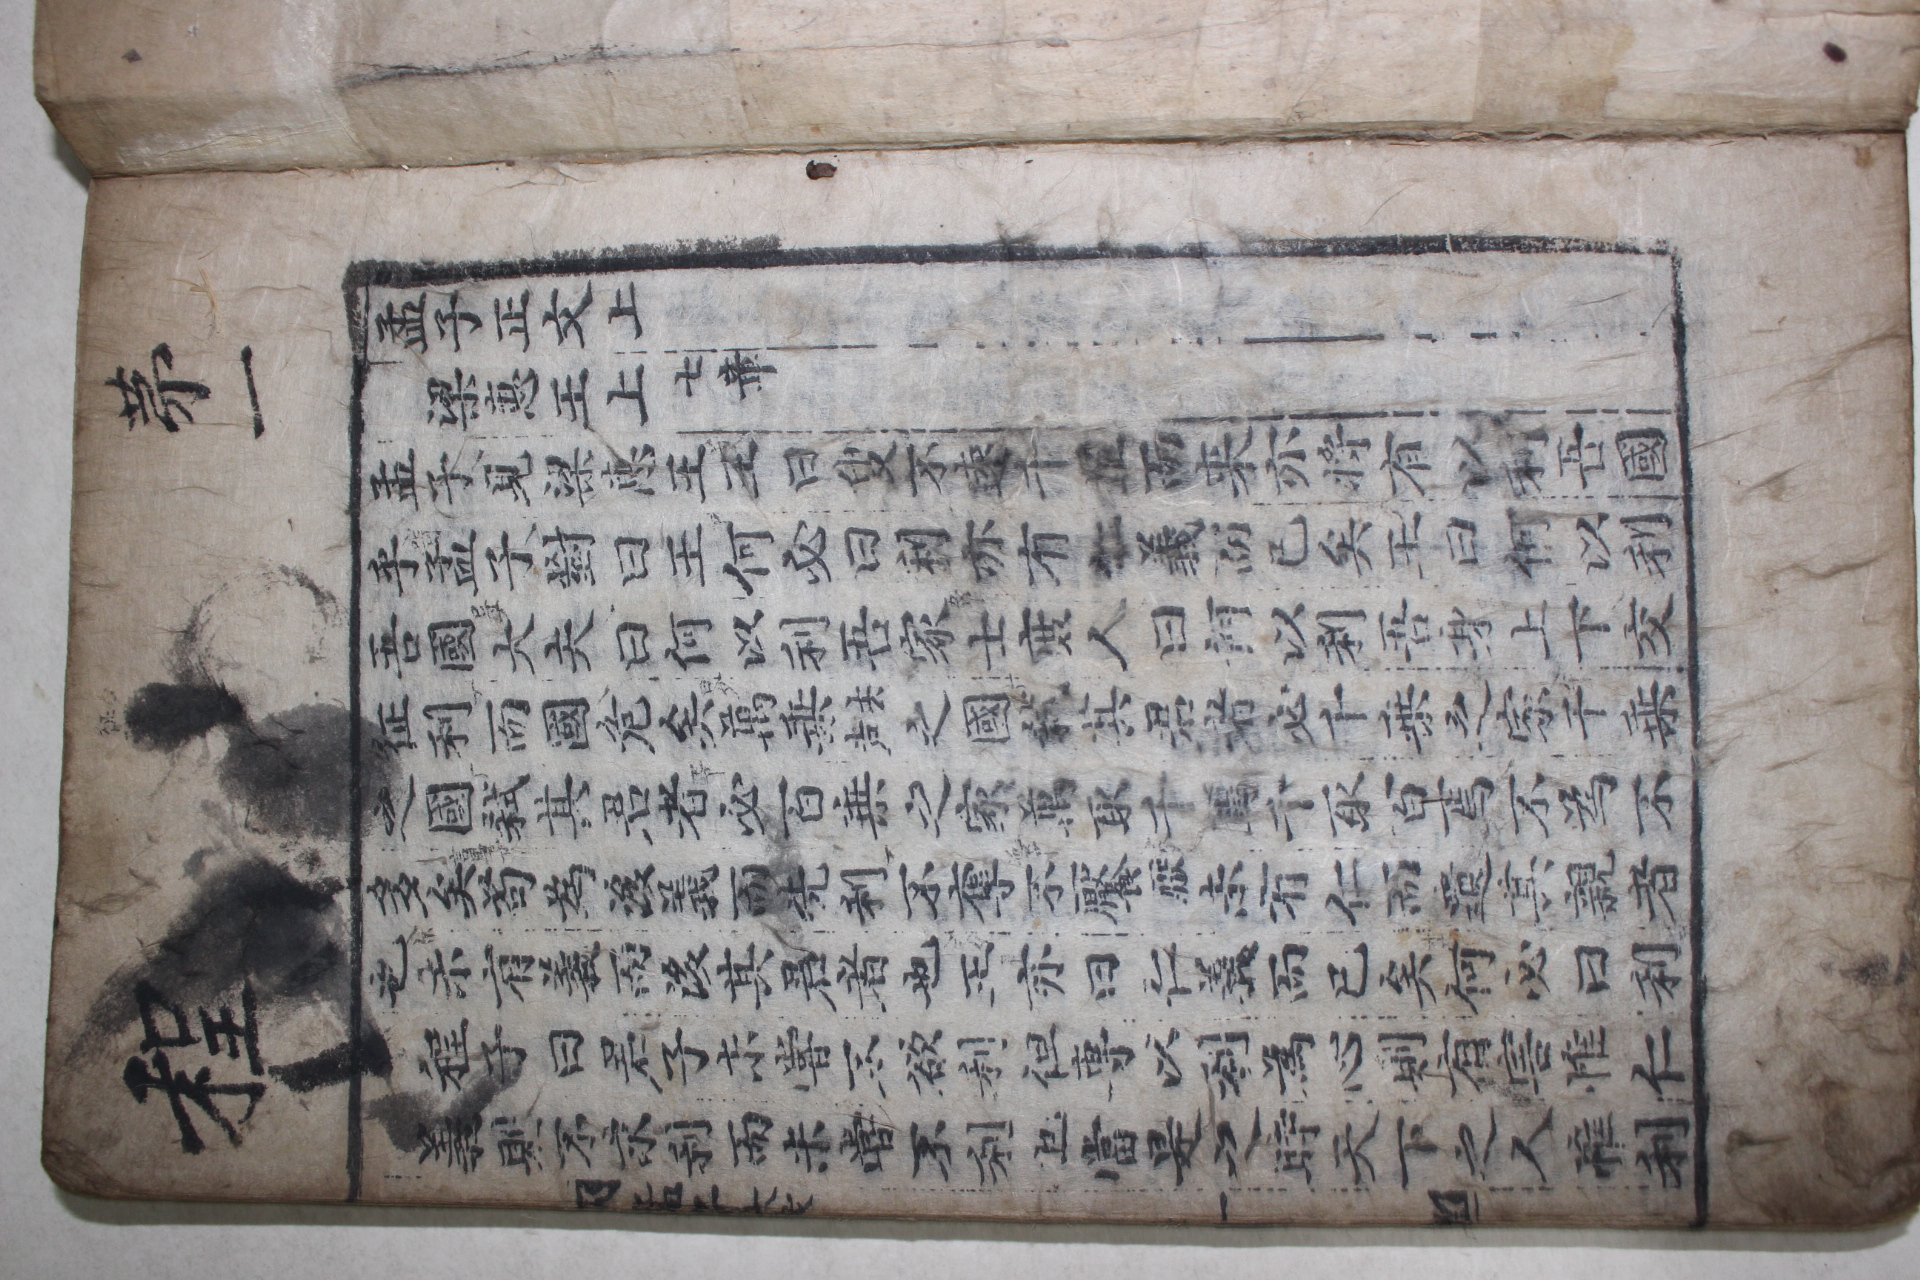 茅一
程
孟子正文上
梁惠王上 七章
孟子見梁惠王王曰叟不遠千里而来亦将有以利吾國
乎孟子對曰王何必曰利亦有仁義而已矣王曰何以利
吾國大夫曰何以利吾家士庶人曰何以利吾身上下交
征利而國危矣萬乗之國弑其君者必千乗之家千乗
之國弑其君者必百乗之家萬取千焉千取百焉不為不
多矣苟為後義而先利不奪不饜未有仁而遺其親者
也未有義而後其君者也王亦曰仁義而已矣何必曰利
程子曰君子未嘗不欲利但專以利為心則有害惟仁
義則不求利而未嘗不利也當是之時天下之人惟利